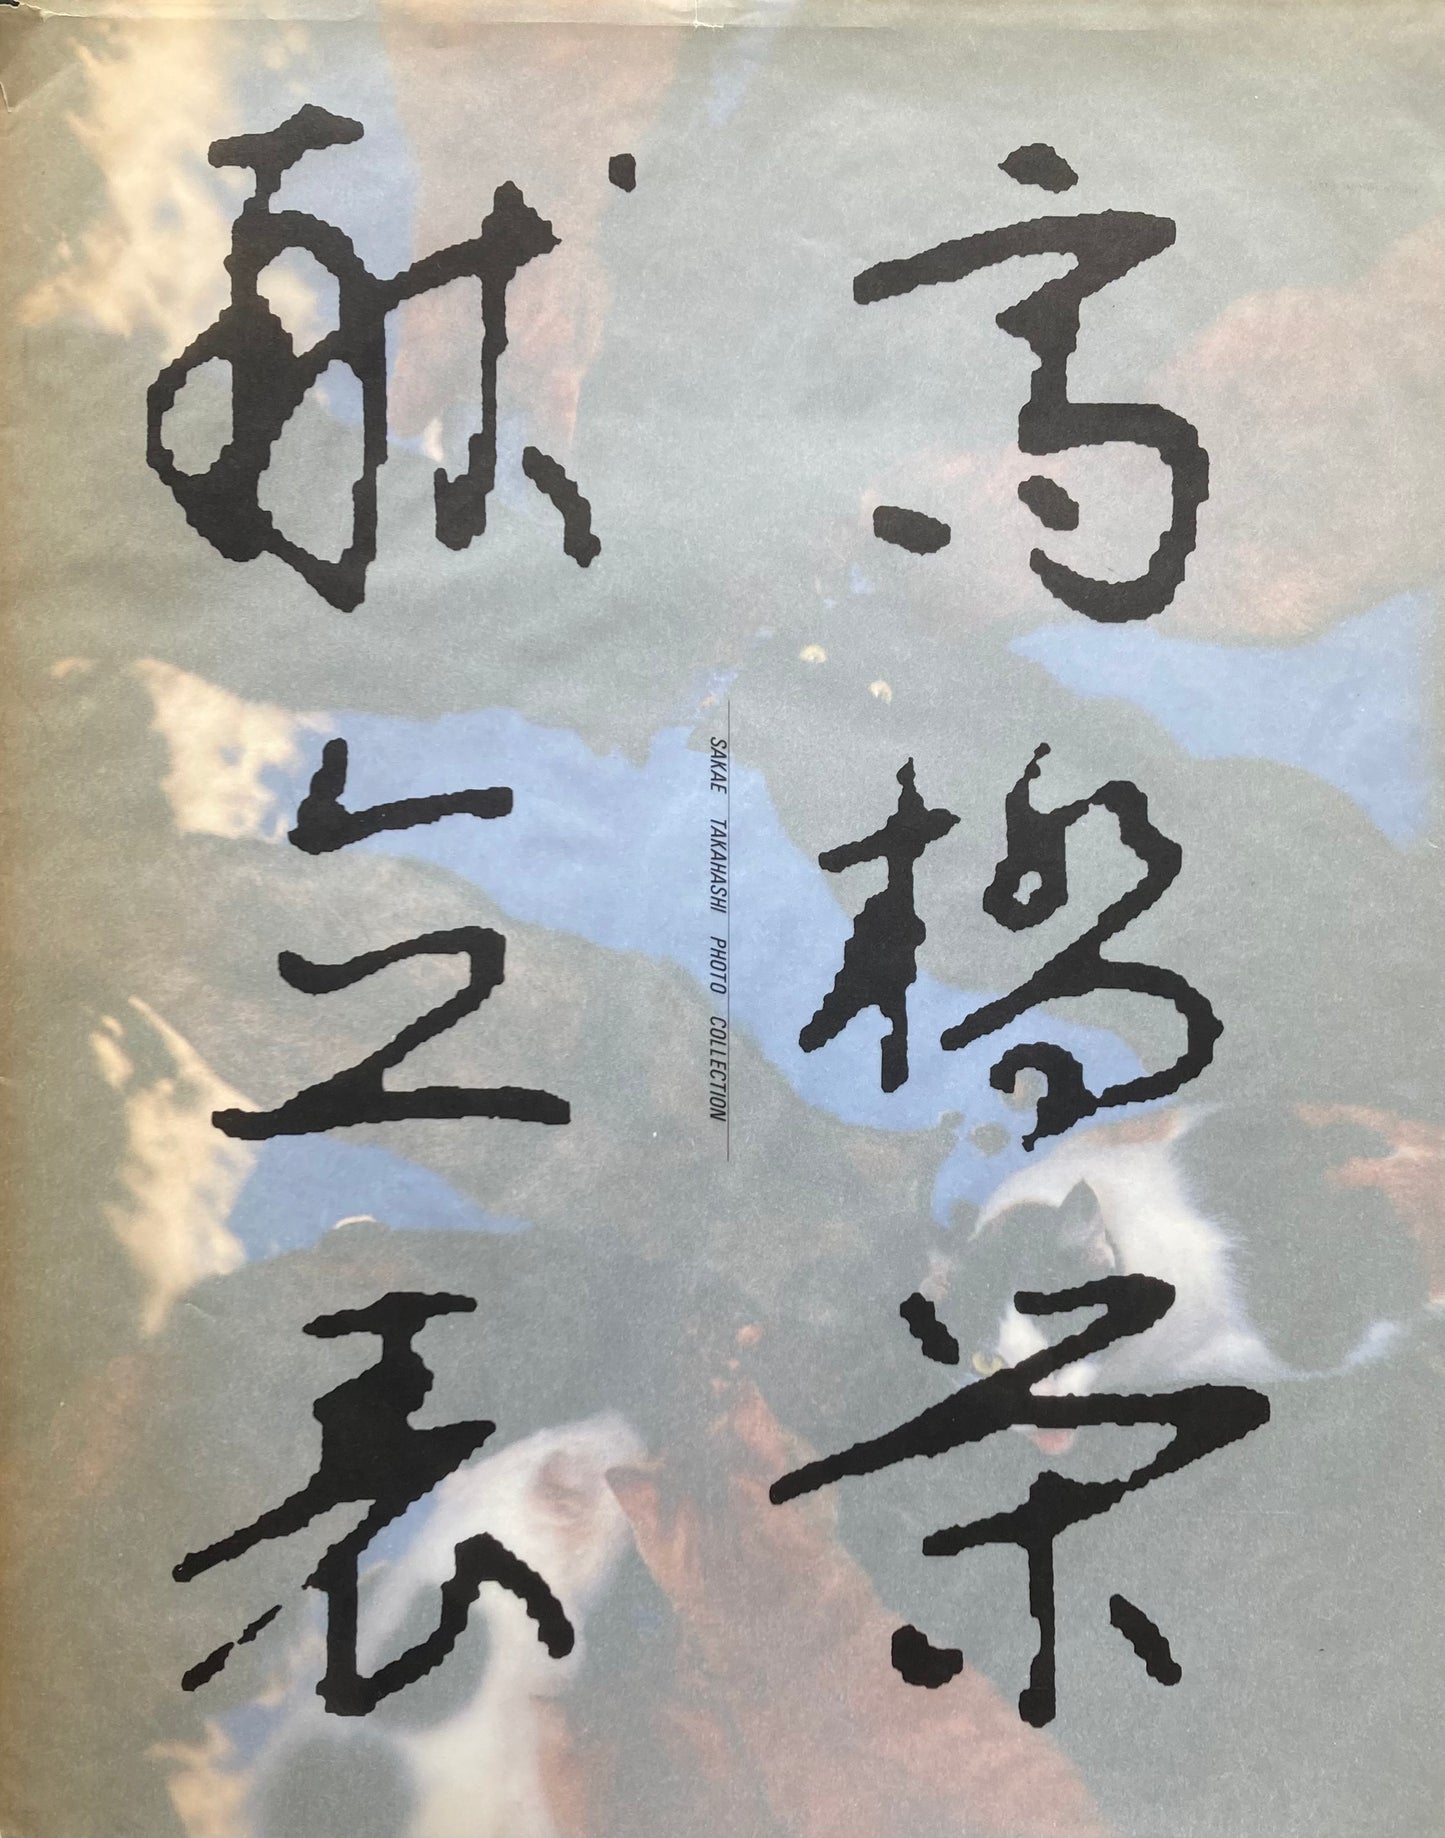 高橋栄
SAKAE TAKAHASHI PHOTO COLLECTION
献立表